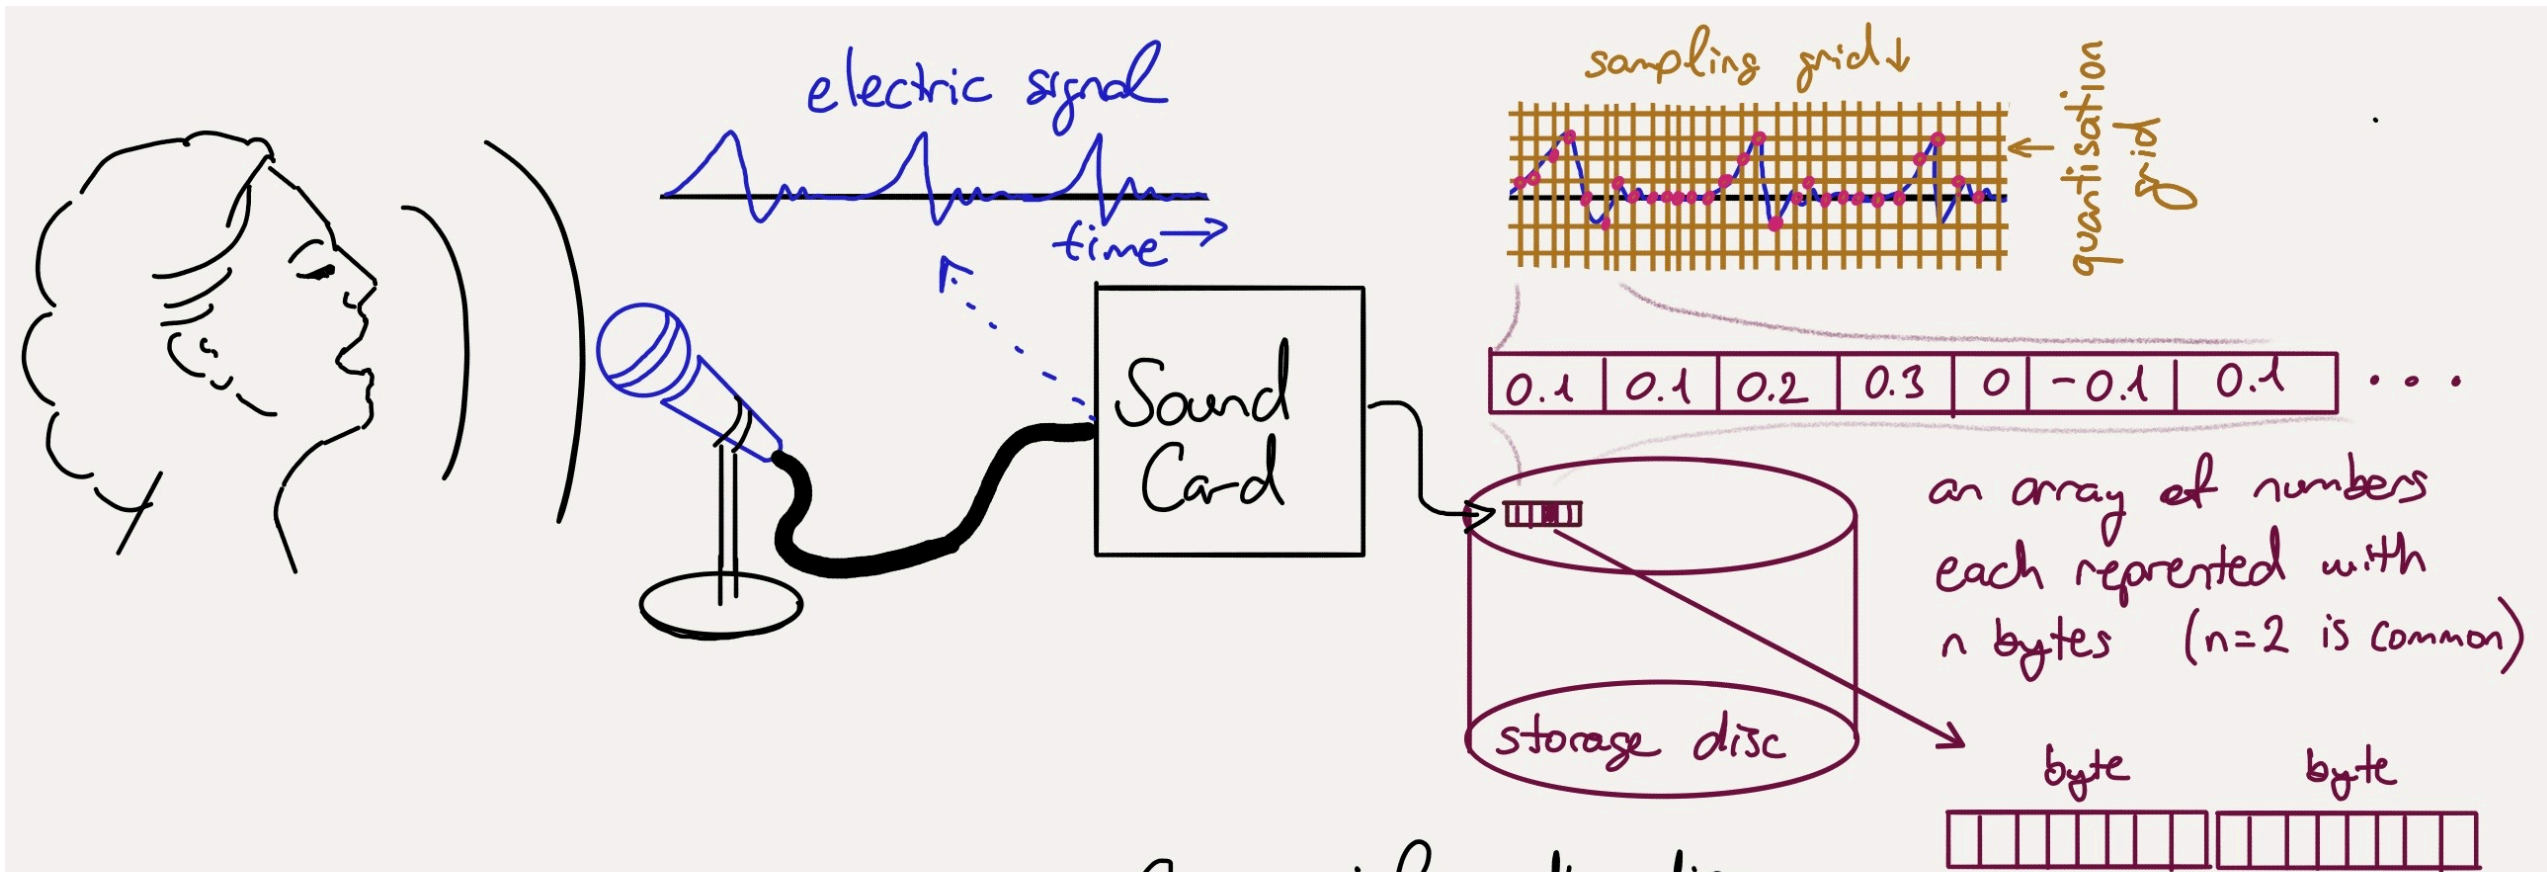 electric signal
time
sampling grid
quantisation
grid
Sound
Card
0.1 0.1 0.2 0.3 0 -0.1 0.1 ...
an array of numbers
each reprented with
n bytes (n=2 is common)
storage disc
byte byte